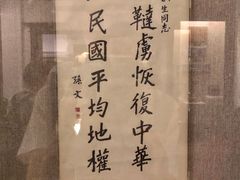 生同志
韃虜恢復中華
民國平均地權
孫文